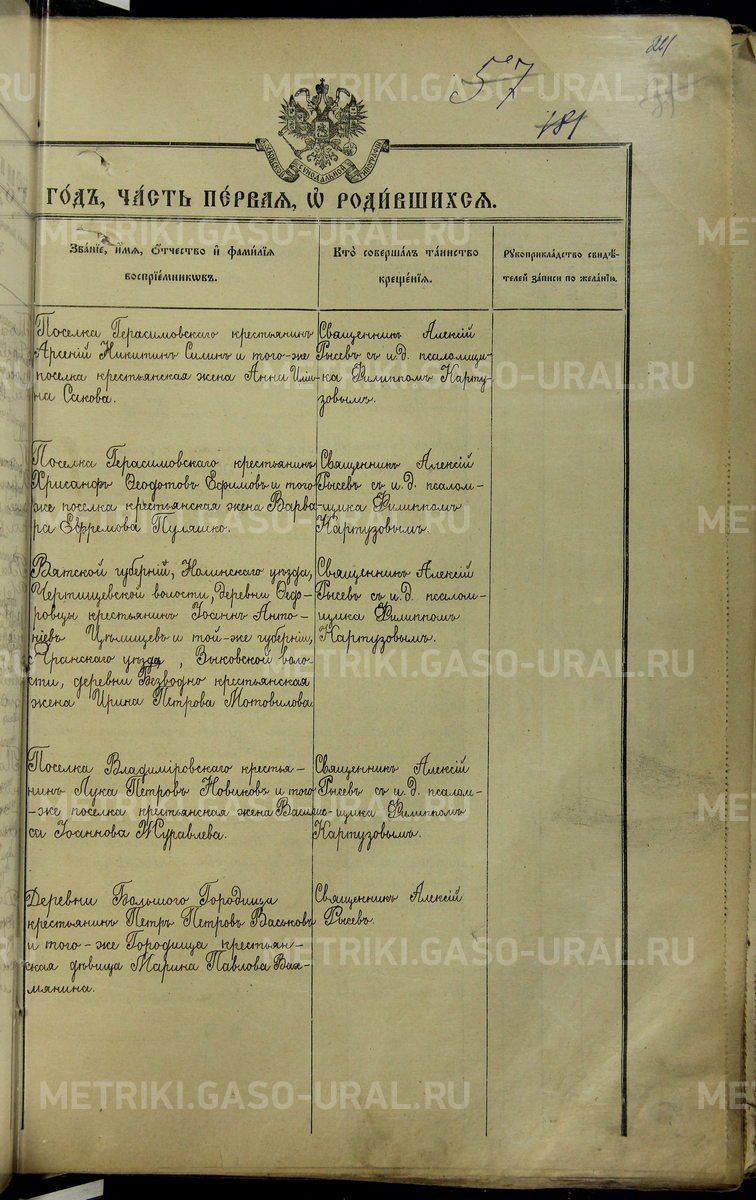 221
57
181
КІЕВСКОЙ СѴНОДАЛЬНОЙ ТИПОГРАФІИ
ГО́ДЪ, ЧА́СТЬ ПЕ́РВАЯ, Ѽ РОДИ́ВШИХСЯ.
Зва́нїе, и҆́мя, ѻ҆́тчество и҆ фами́лїя
воспрїе́мникѡвъ.
Кто̀ соверша́лъ та́инство
креще́нїя.
Рꙋкоприкла́дство свидѣ́-
телей за́писи по жела́нїю.
Поселка Герасимовскаго крестьянинъ
Арсеній Никитинъ Силинъ и того-же
поселка крестьянская жена Анна Ильи-
на Сакова.
Священникъ Алексій
Рысевъ съ и. д. псаломщи-
ка Филиппомъ Карту-
зовымъ.
Поселка Герасимовскаго крестьянинъ
Хрисанфъ Ѳеодотовъ Ефимовъ и того
-же поселка крестьянская жена Варва-
ра Ефремова Пуляшко.
Священникъ Алексій
Рысевъ съ и. д. псалом-
щика Филиппомъ
Картузовымъ.
Вятской губерніи, Нолинскаго уѣзда,
Чертищевской волости, деревни Ѳедо-
ровцы крестьянинъ Іоаннъ Анто-
ніевъ Цѣлищевъ и той-же губерніи,
Яранскаго уѣзда, Зыковской воло-
сти, деревни Безводно крестьянская
жена Ирина Петрова Мотовилова
Священникъ Алексій
Рысевъ съ и. д. псалом-
щика Филиппомъ
Картузовымъ.
Поселка Владиміровскаго крестья-
нинъ Лука Петровъ Новиковъ и того
-же поселка крестьянская жена Василис-
са Іоаннова Журавлева.
Священникъ Алексій
Рысевъ съ и. д. псалом-
щика Филиппомъ
Картузовымъ.
Деревни Большого Городища
крестьянинъ Петръ Петровъ Васьковъ
и того-же Городища крестьян-
ская дѣвица Марина Павлова Вах-
мянина.
Священникъ Алексій
Рысевъ.
METRIKI.GASO-URAL.RU
METRIKI.GASO-URAL.RU
METRIKI.GASO-URAL.RU
METRIKI.GASO-URAL.RU
METRIKI.GASO-URAL.RU
METRIKI.GASO-URAL.RU
METRIKI.GASO-URAL.RU
METRIKI.GASO-URAL.RU